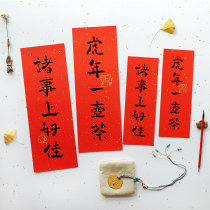 諸事上好佳
虎年一壺茶
諸事上好佳
虎年一壺茶